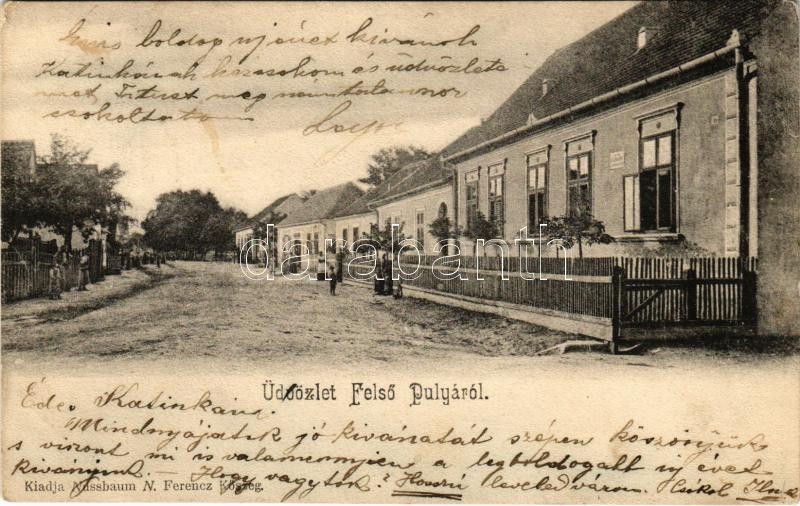 boldog új évet kivánok
Katinkának kézcsókom és üdvözlete
met, Titust meg
csókoltatom
darabanth.com
Üdvözlet Felső Pulyáról.
Édes Katinkám.
Mindnyájatok jó kivánatát szépen köszönjük
s viszont mi is valamennyien a legboldogabb új évet
kivánjunk. – Hogy vagytok? Hosszú leveled várom. Csókol Ilna
Kiadja Nussbaum N. Ferencz Kőszeg.